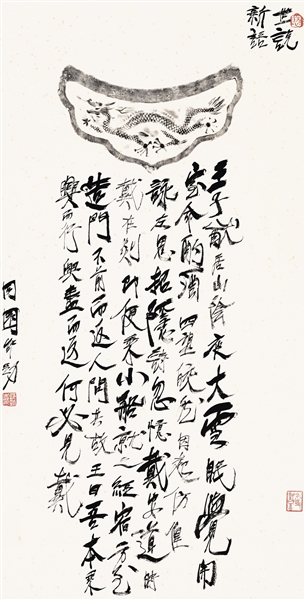 世說
新語
王子猷居山陰夜大雪眠覺開
室命酌酒四望皎然因起仿偟
詠左思招隱詩忽憶戴安道時
戴在剡即便乘小船就之經宿方至
造門不前而返人問其故王曰吾本乘
興而行興盡而返何必見戴